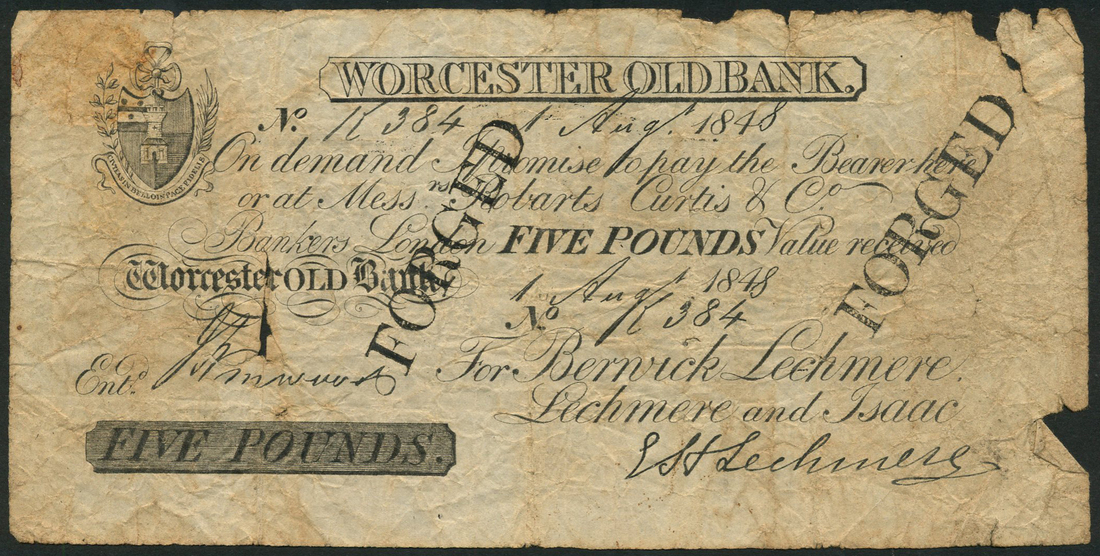 WORCESTER OLD BANK.
No. K 384 1 Augt. 1848
On demand I promise to pay the Bearer here
or at Messrs. Robarts Curtis & Co.
Bankers London FIVE POUNDS Value received
Worcester OLD Bank
1 Augt 1848
No. K 384
Entd.
For Berwick Lechmere
Lechmere and Isaac
FIVE POUNDS.
E H Lechmere
FORGED
FORGED
CIVITAS IN BELLO IN PACE FIDELIS